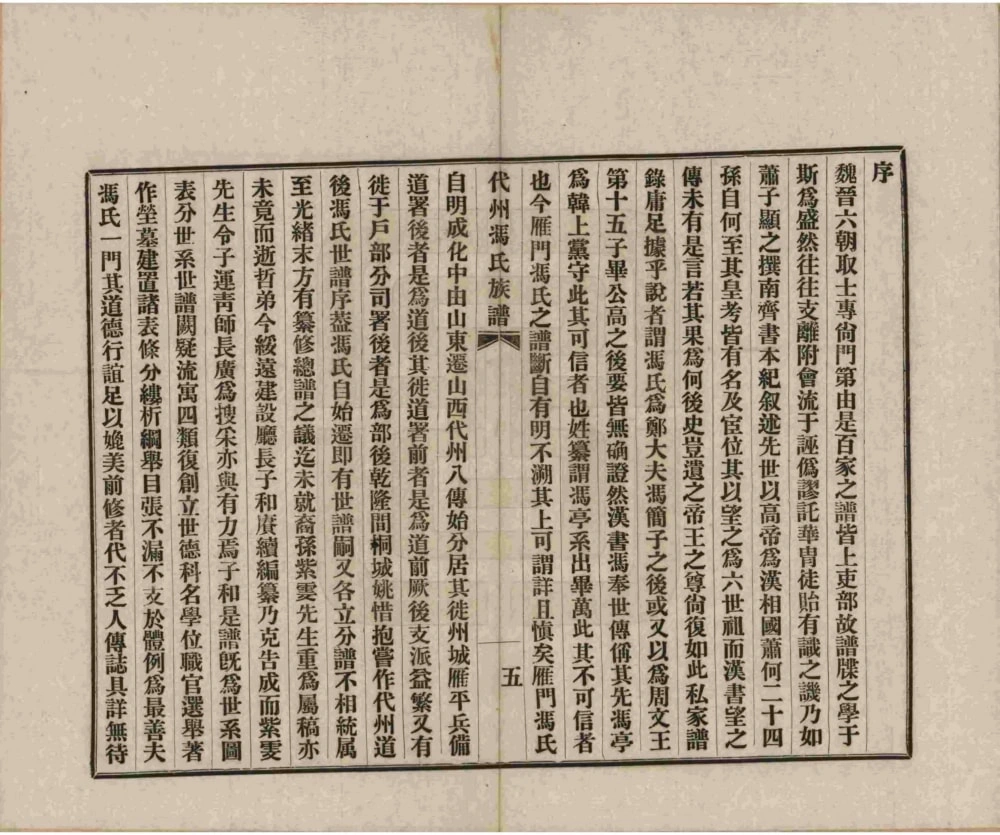 序
魏晉六朝取士專尙門第由是百家之譜皆上吏部故譜牒之學于
斯爲盛然往往支離附會流于誣僞謬託華胄徒貽有識之譏乃如
蕭子顯之撰南齊書本紀叙述先世以高帝爲漢相國蕭何二十四
孫自何至其皇考皆有名及宦位其以望之爲六世祖而漢書望之
傳未有是言若其果爲何後史豈遺之帝王之尊尙復如此私家譜
錄庸足據乎說者謂馮氏爲鄭大夫馮簡子之後或又以爲周文王
第十五子畢公高之後要皆無确證然漢書馮奉世傳偁其先馮亭
爲韓上黨守此其可信者也姓纂謂馮亭系出畢萬此其不可信者
也今雁門馮氏之譜斷自有明不溯其上可謂詳且愼矣雁門馮氏
代州馮氏族譜
五
自明成化中由山東遷山西代州八傳始分居其徙州城雁平兵備
道署後者是爲道後其徙道署前者是爲道前厥後支派益繁又有
徙于戶部分司署後者是爲部後乾隆間桐城姚惜抱嘗作代州道
後馮氏世譜序葢馮氏自始遷即有世譜嗣又各立分譜不相統属
至光緒末方有纂修總譜之議迄未就裔孫紫雯先生重爲屬稿亦
未竟而逝哲弟今綏遠建設廳長子和賡續編纂乃克告成而紫雯
先生令子運靑師長廣爲搜采亦與有力焉子和是譜旣爲世系圖
表分世系世譜闕疑流寓四類復創立世德科名學位職官選舉著
作塋墓建置諸表條分縷析綱舉目張不漏不支於體例爲最善夫
馮氏一門其道德行誼足以媲美前修者代不乏人傳誌具詳無待